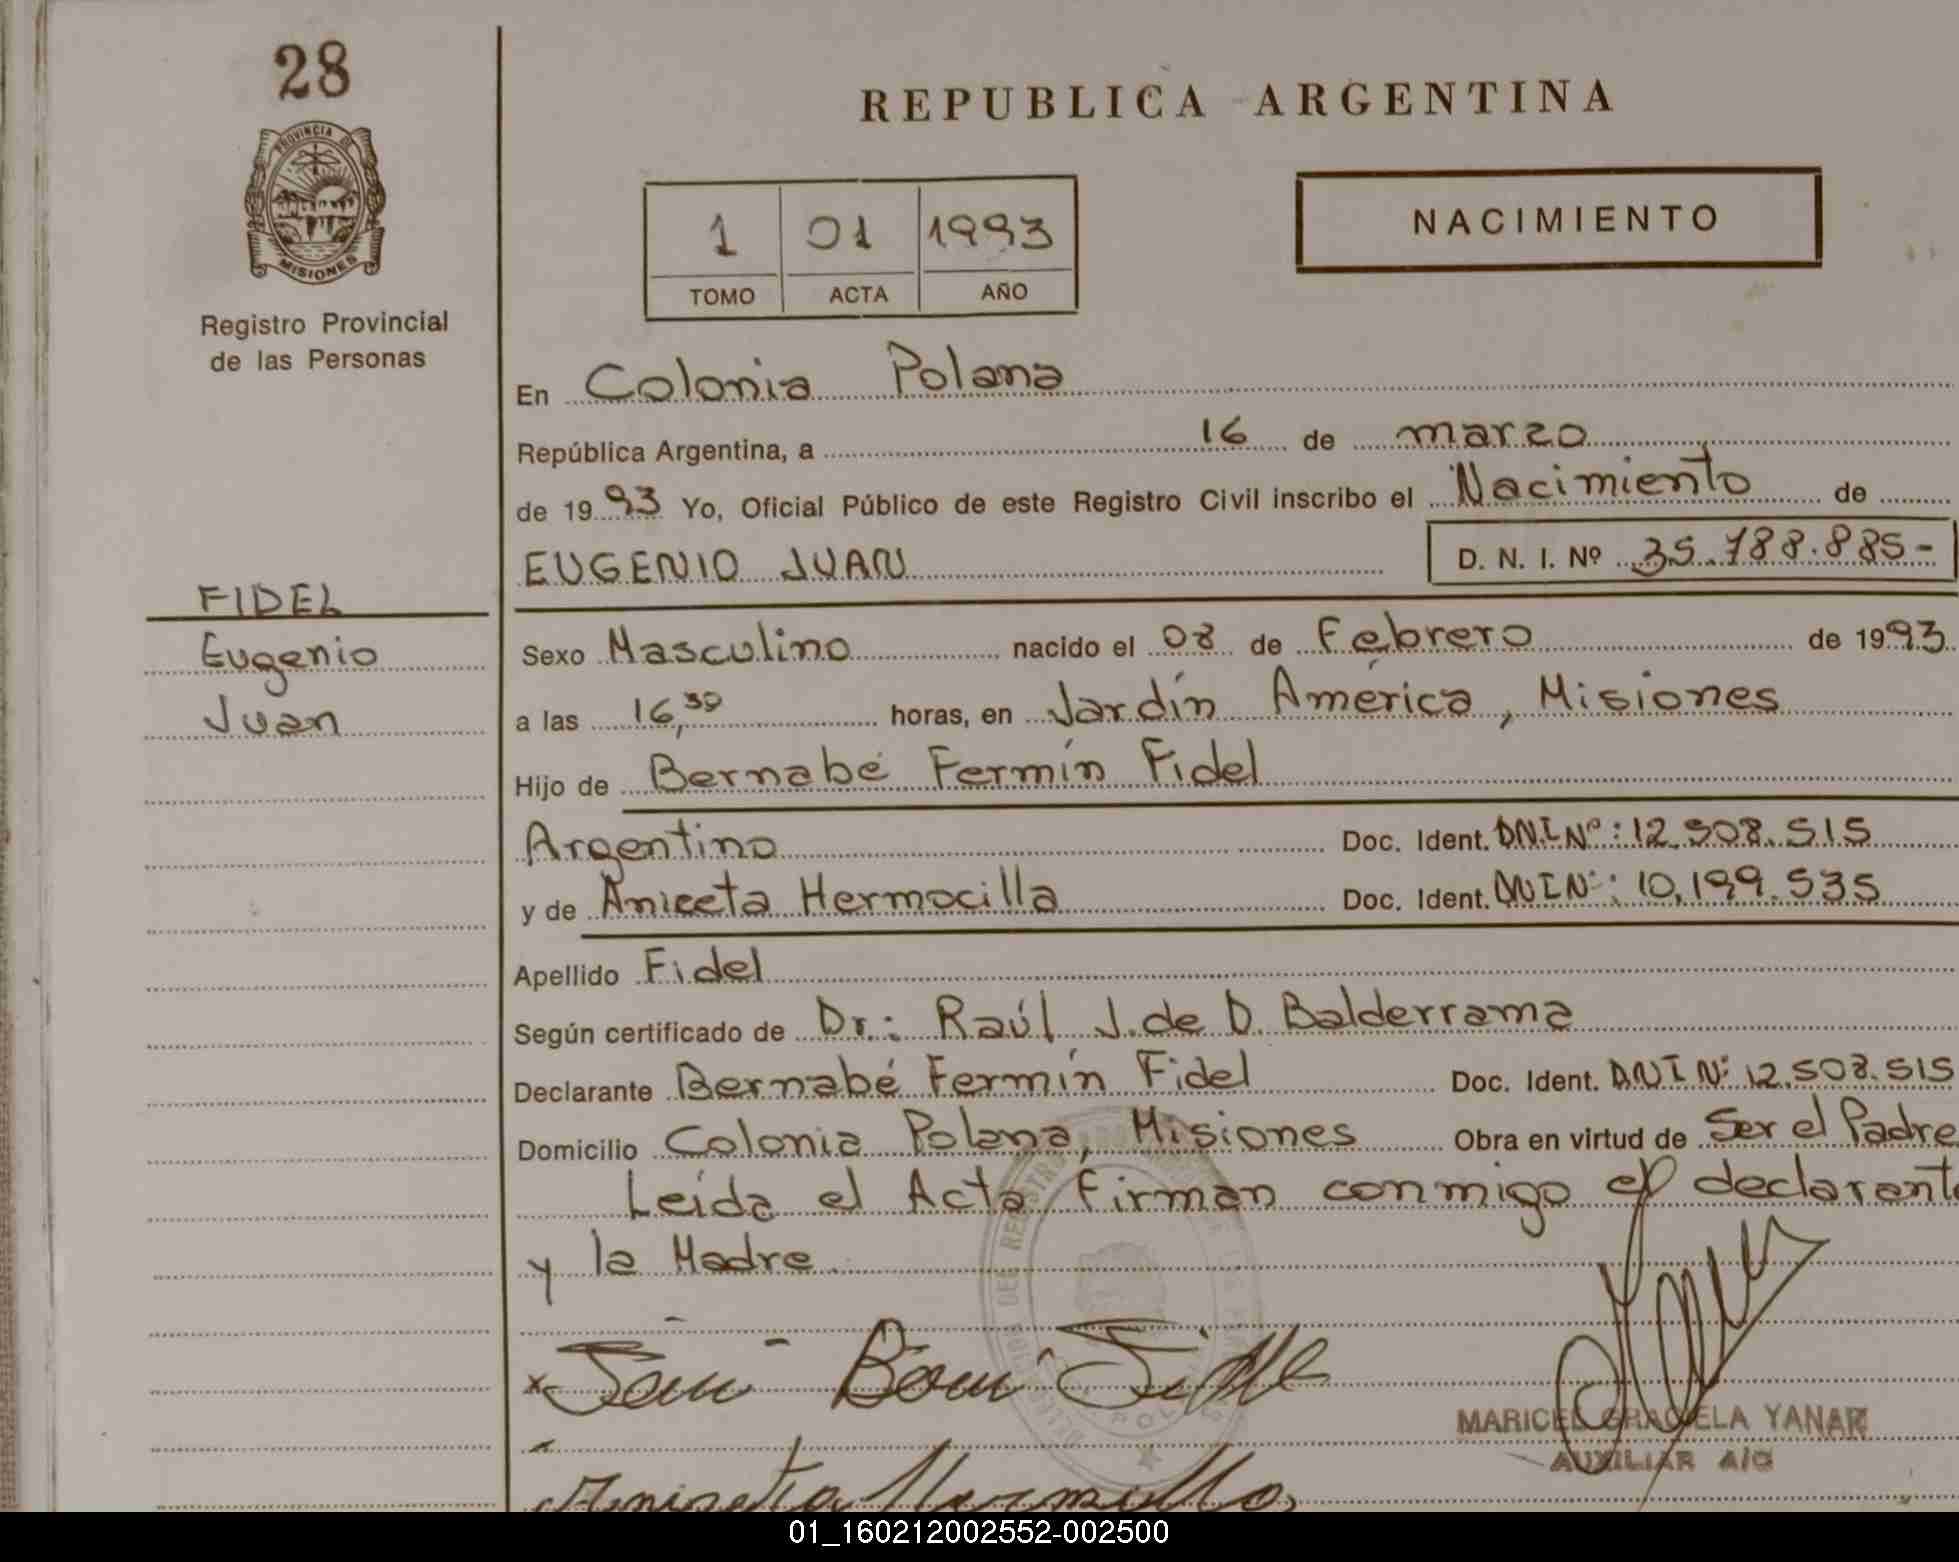 28
PROVINCIA DE
MISIONES
Registro Provincial
de las Personas
REPUBLICA ARGENTINA
1 01 1993
TOMO ACTA AÑO
NACIMIENTO
En Colonia Polana
República Argentina, a 16 de marzo
de 1993 Yo, Oficial Público de este Registro Civil inscribo el Nacimiento de
EUGENIO JUAN D. N. I. Nº 35.788.885-
FIDEL
Eugenio
Juan
Sexo Masculino nacido el 08 de Febrero de 1993
a las 16,30 horas, en Jardín América, Misiones
Hijo de Bernabé Fermín Fidel
Argentino Doc. Ident. DNI Nº: 12.508.515
y de Aniceta Hermocilla Doc. Ident. DNI Nº: 10,199.535
Apellido Fidel
Según certificado de Dr.: Raúl J. de D. Balderrama
Declarante Bernabé Fermín Fidel Doc. Ident. DNI Nº 12.508.515
Domicilio Colonia Polana, Misiones Obra en virtud de Ser el Padre
Leída el Acta, Firman conmigo el declarante
y la Madre
MARICEL GRACIELA YANAR
AUXILIAR A/C
01_160212002552-002500